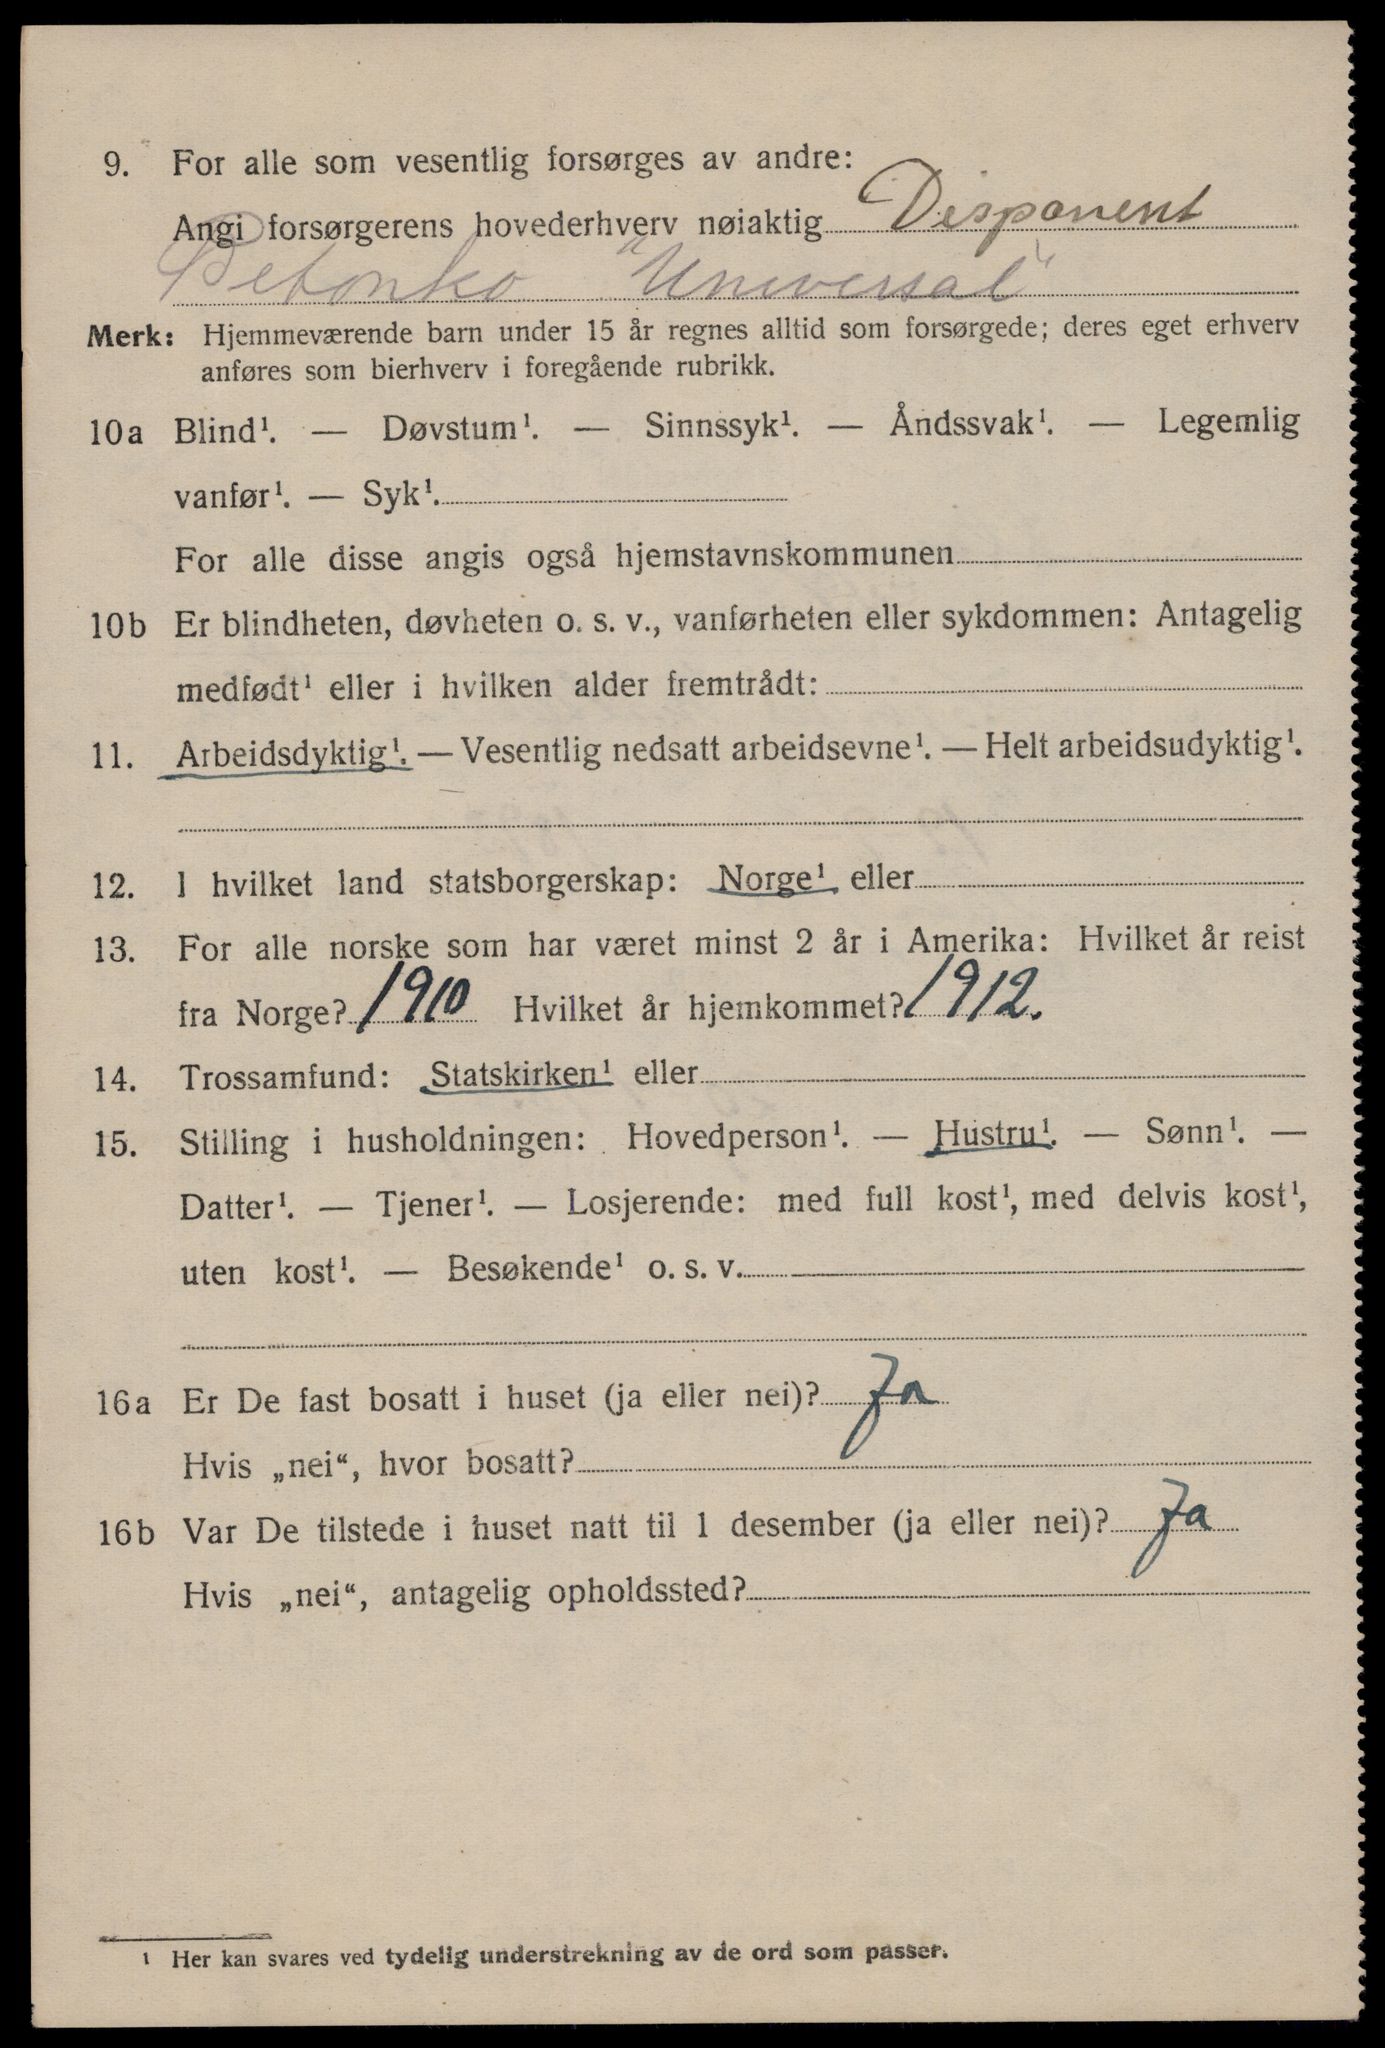 9. For alle som vesentlig forsørges av andre:
Angi forsørgerens hovederhverv nøiaktig Disponent
Petonko "Universal"
Merk: Hjemmeværende barn under 15 år regnes alltid som forsørgede; deres eget erhverv
anføres som bierhverv i foregående rubrikk.
10a Blind¹. — Døvstum¹. — Sinnssyk¹. — Åndssvak¹. — Legemlig
vanfør¹. — Syk¹.
For alle disse angis også hjemstavnskommunen
10b Er blindheten, døvheten o. s. v., vanførheten eller sykdommen: Antagelig
medfødt¹ eller i hvilken alder fremtrådt:
11. Arbeidsdyktig¹. — Vesentlig nedsatt arbeidsevne¹. — Helt arbeidsudyktig¹.
12. I hvilket land statsborgerskap: Norge¹ eller
13. For alle norske som har været minst 2 år i Amerika: Hvilket år reist
fra Norge? 1910 Hvilket år hjemkommet? 1912.
14. Trossamfund: Statskirken¹ eller
15. Stilling i husholdningen: Hovedperson¹. — Hustru¹. — Sønn¹. —
Datter¹. — Tjener¹. — Losjerende: med full kost¹, med delvis kost¹,
uten kost¹. — Besøkende¹ o. s. v.
16a Er De fast bosatt i huset (ja eller nei)? Ja
Hvis „nei“, hvor bosatt?
16b Var De tilstede i huset natt til 1 desember (ja eller nei)? Ja
Hvis „nei“, antagelig opholdssted?
¹ Her kan svares ved tydelig understrekning av de ord som passer.